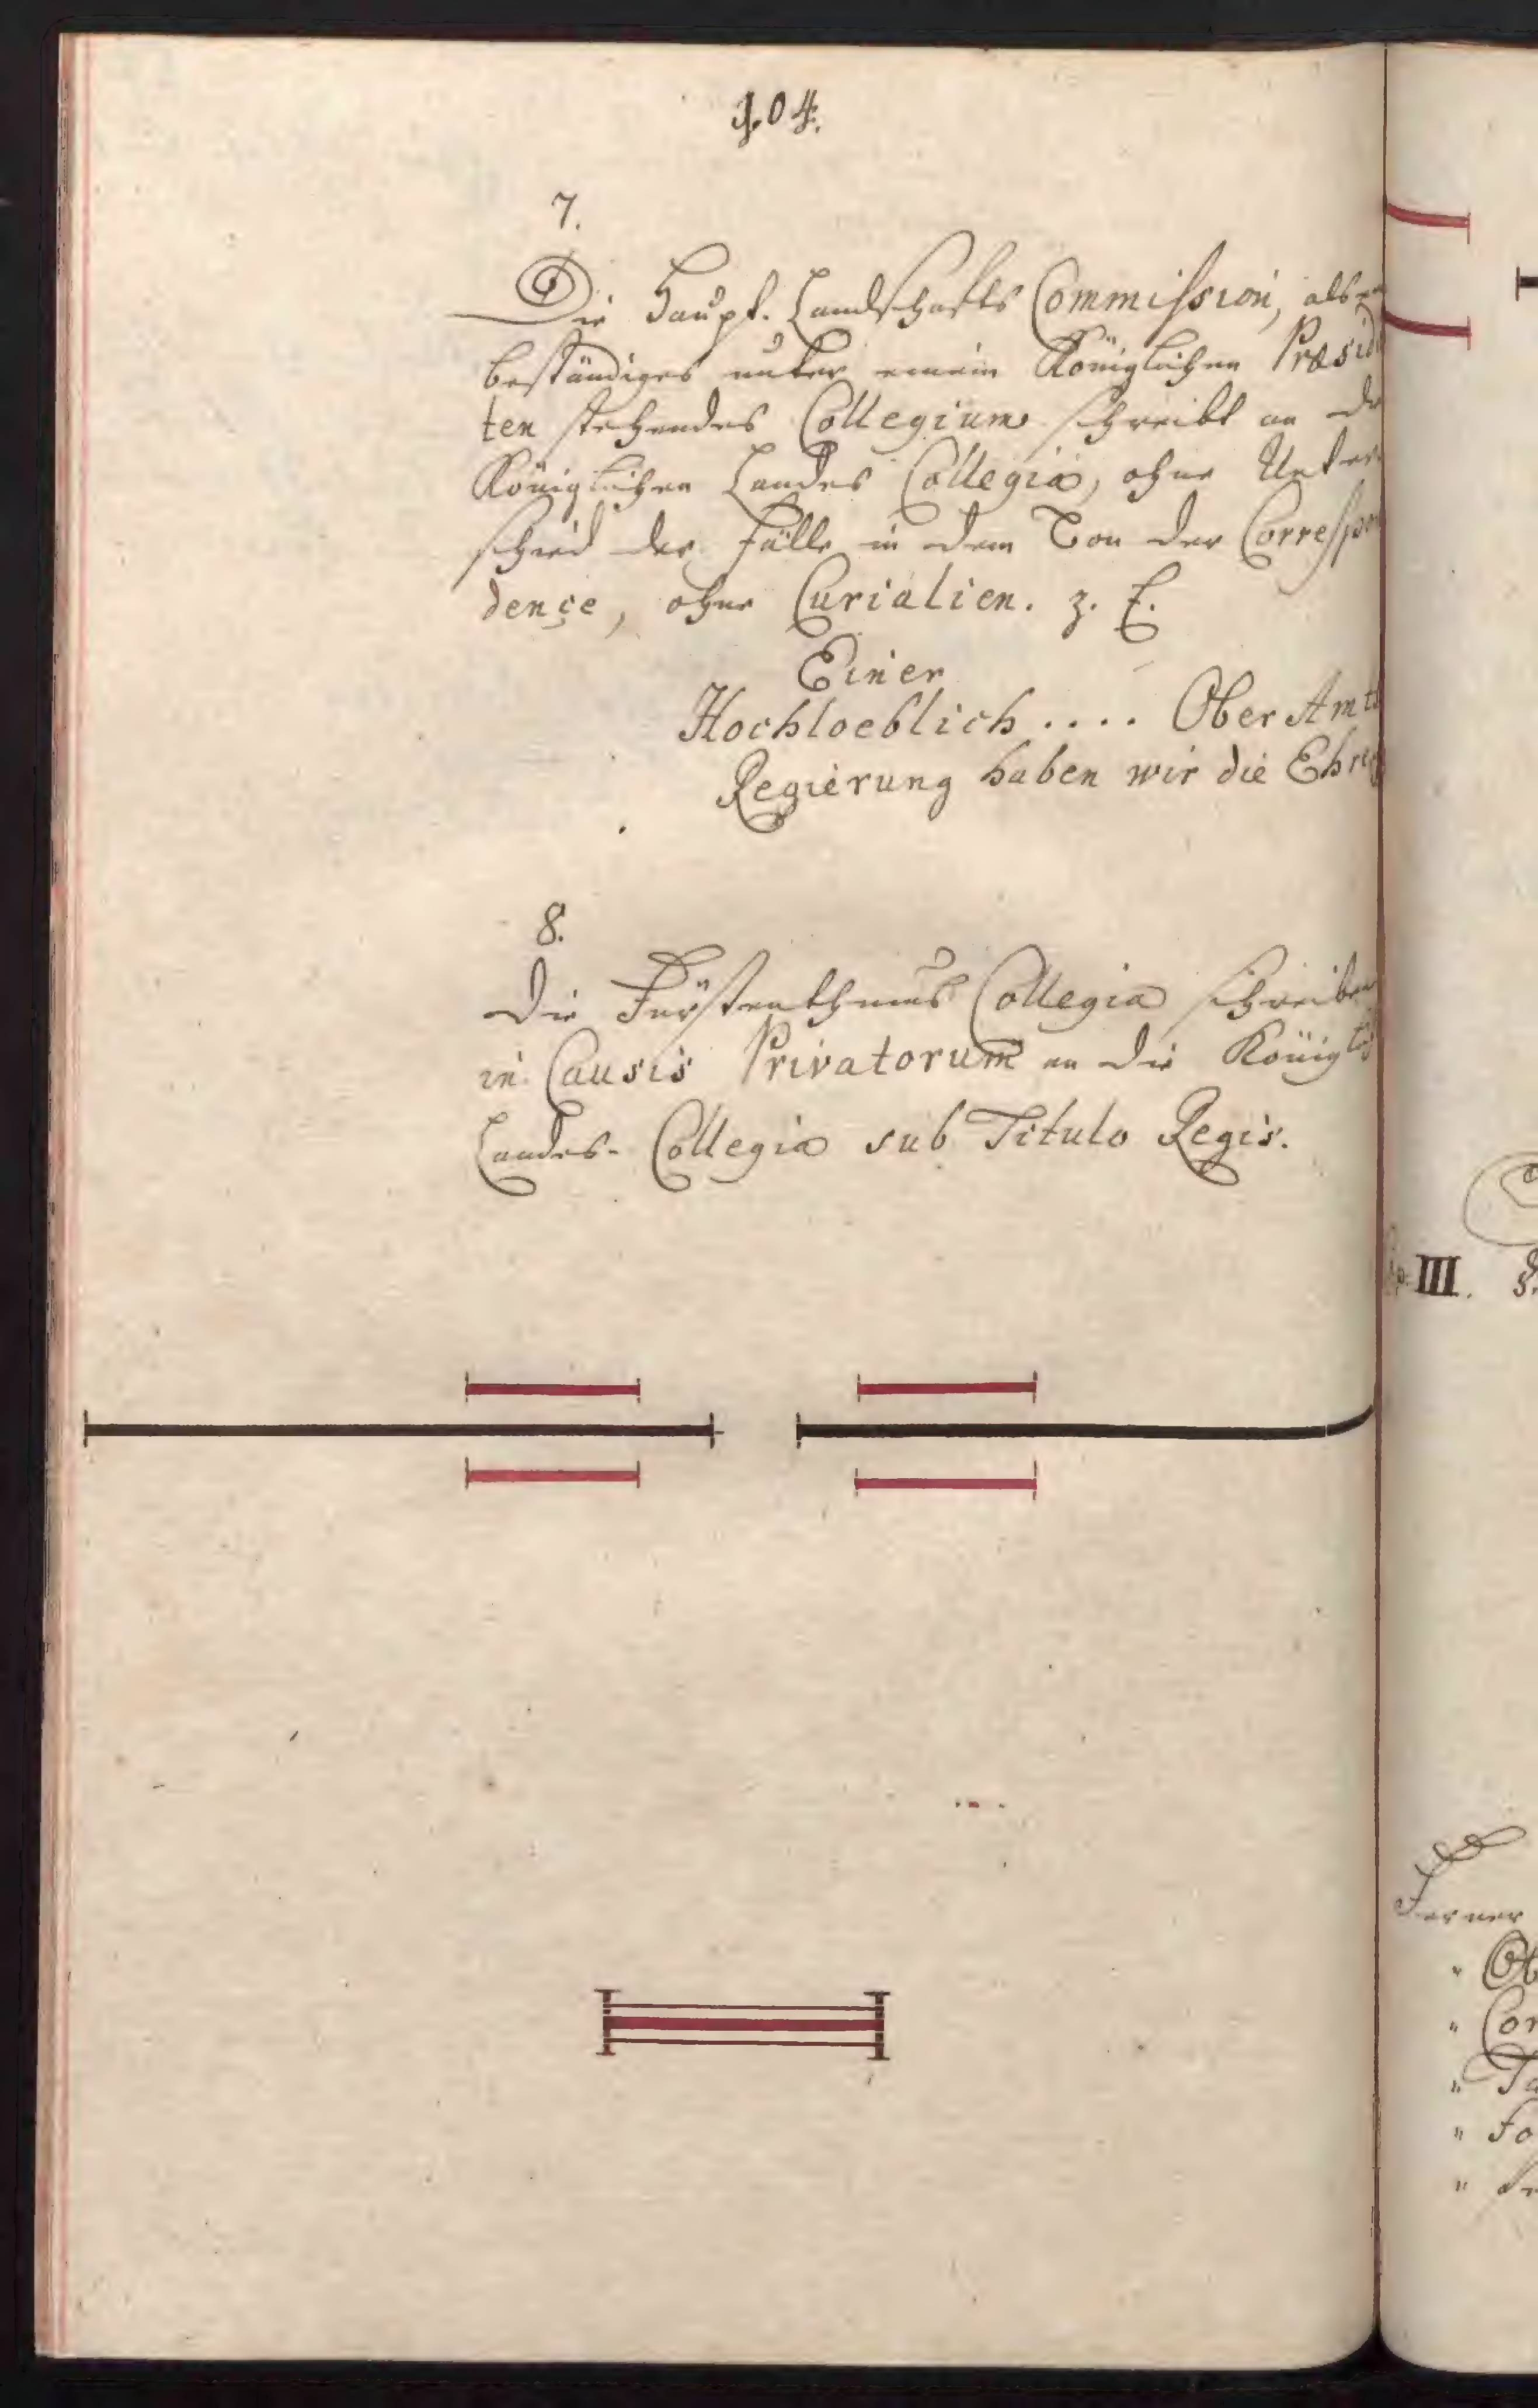 104.
7.
Die Haupt-Landschafts Commission, als
beständiges unter einem Königlichen Præsid
ten stehendes Collegium schreibt an
Königlichen Landes Collegia, ohne Unter
schied der Fälle in dem Ton der Correspon
dençe, ohne Curialien. z. E.
Einer
Hochloeblich .... Ober Amts
Regierung haben wir die Ehre
8.
Die Fürstenthums Collegia schreiben
in Causis Privatorum an die Königl
Landes-Collegia sub Titulo Regis.
III.
Ferner